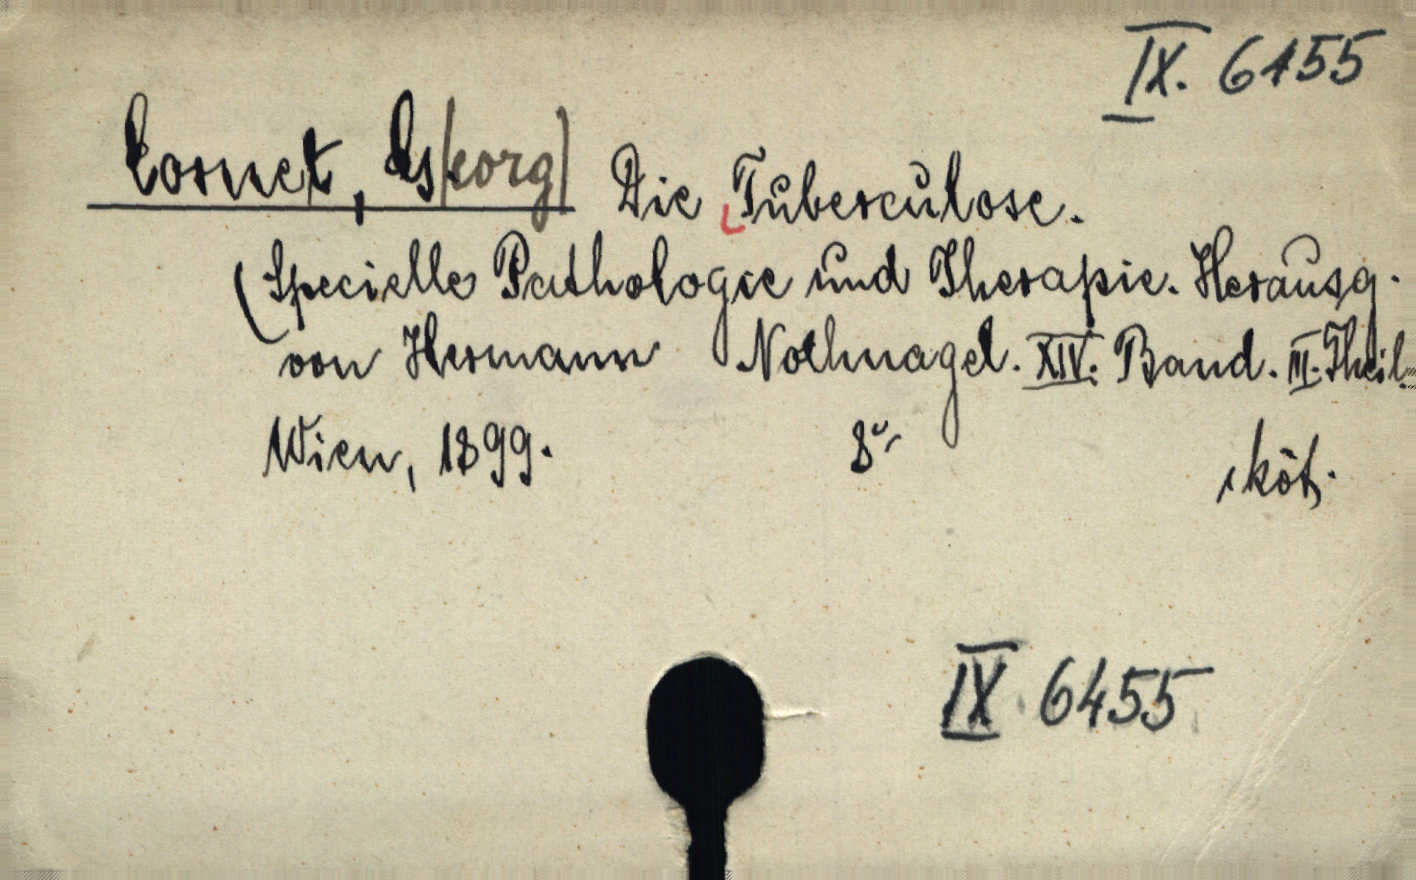 IX. 6455
Cornet, G(eorg) Die Tuberculose.
(Specielle Pathologie und Therapie. Herausg.
von Hermann Nothnagel. XIV. Band. III. Theil.
Wien, 1899. 8º köt.
IX 6455